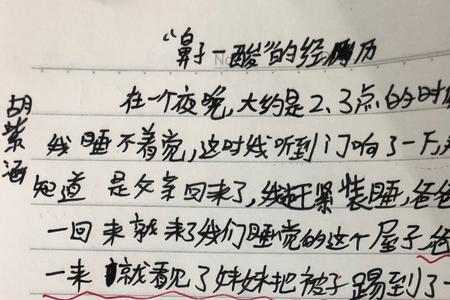 “鼻子一酸”的经历
胡紫涵
在一个夜晚,大约是2、3点的时
我睡不着觉,这时我听到门响了一下,
知道是父亲回来了,我赶紧装睡,爸爸
一回来就来了我们睡觉的这个屋子,爸
一来就看见了妹妹把被子踢到了一